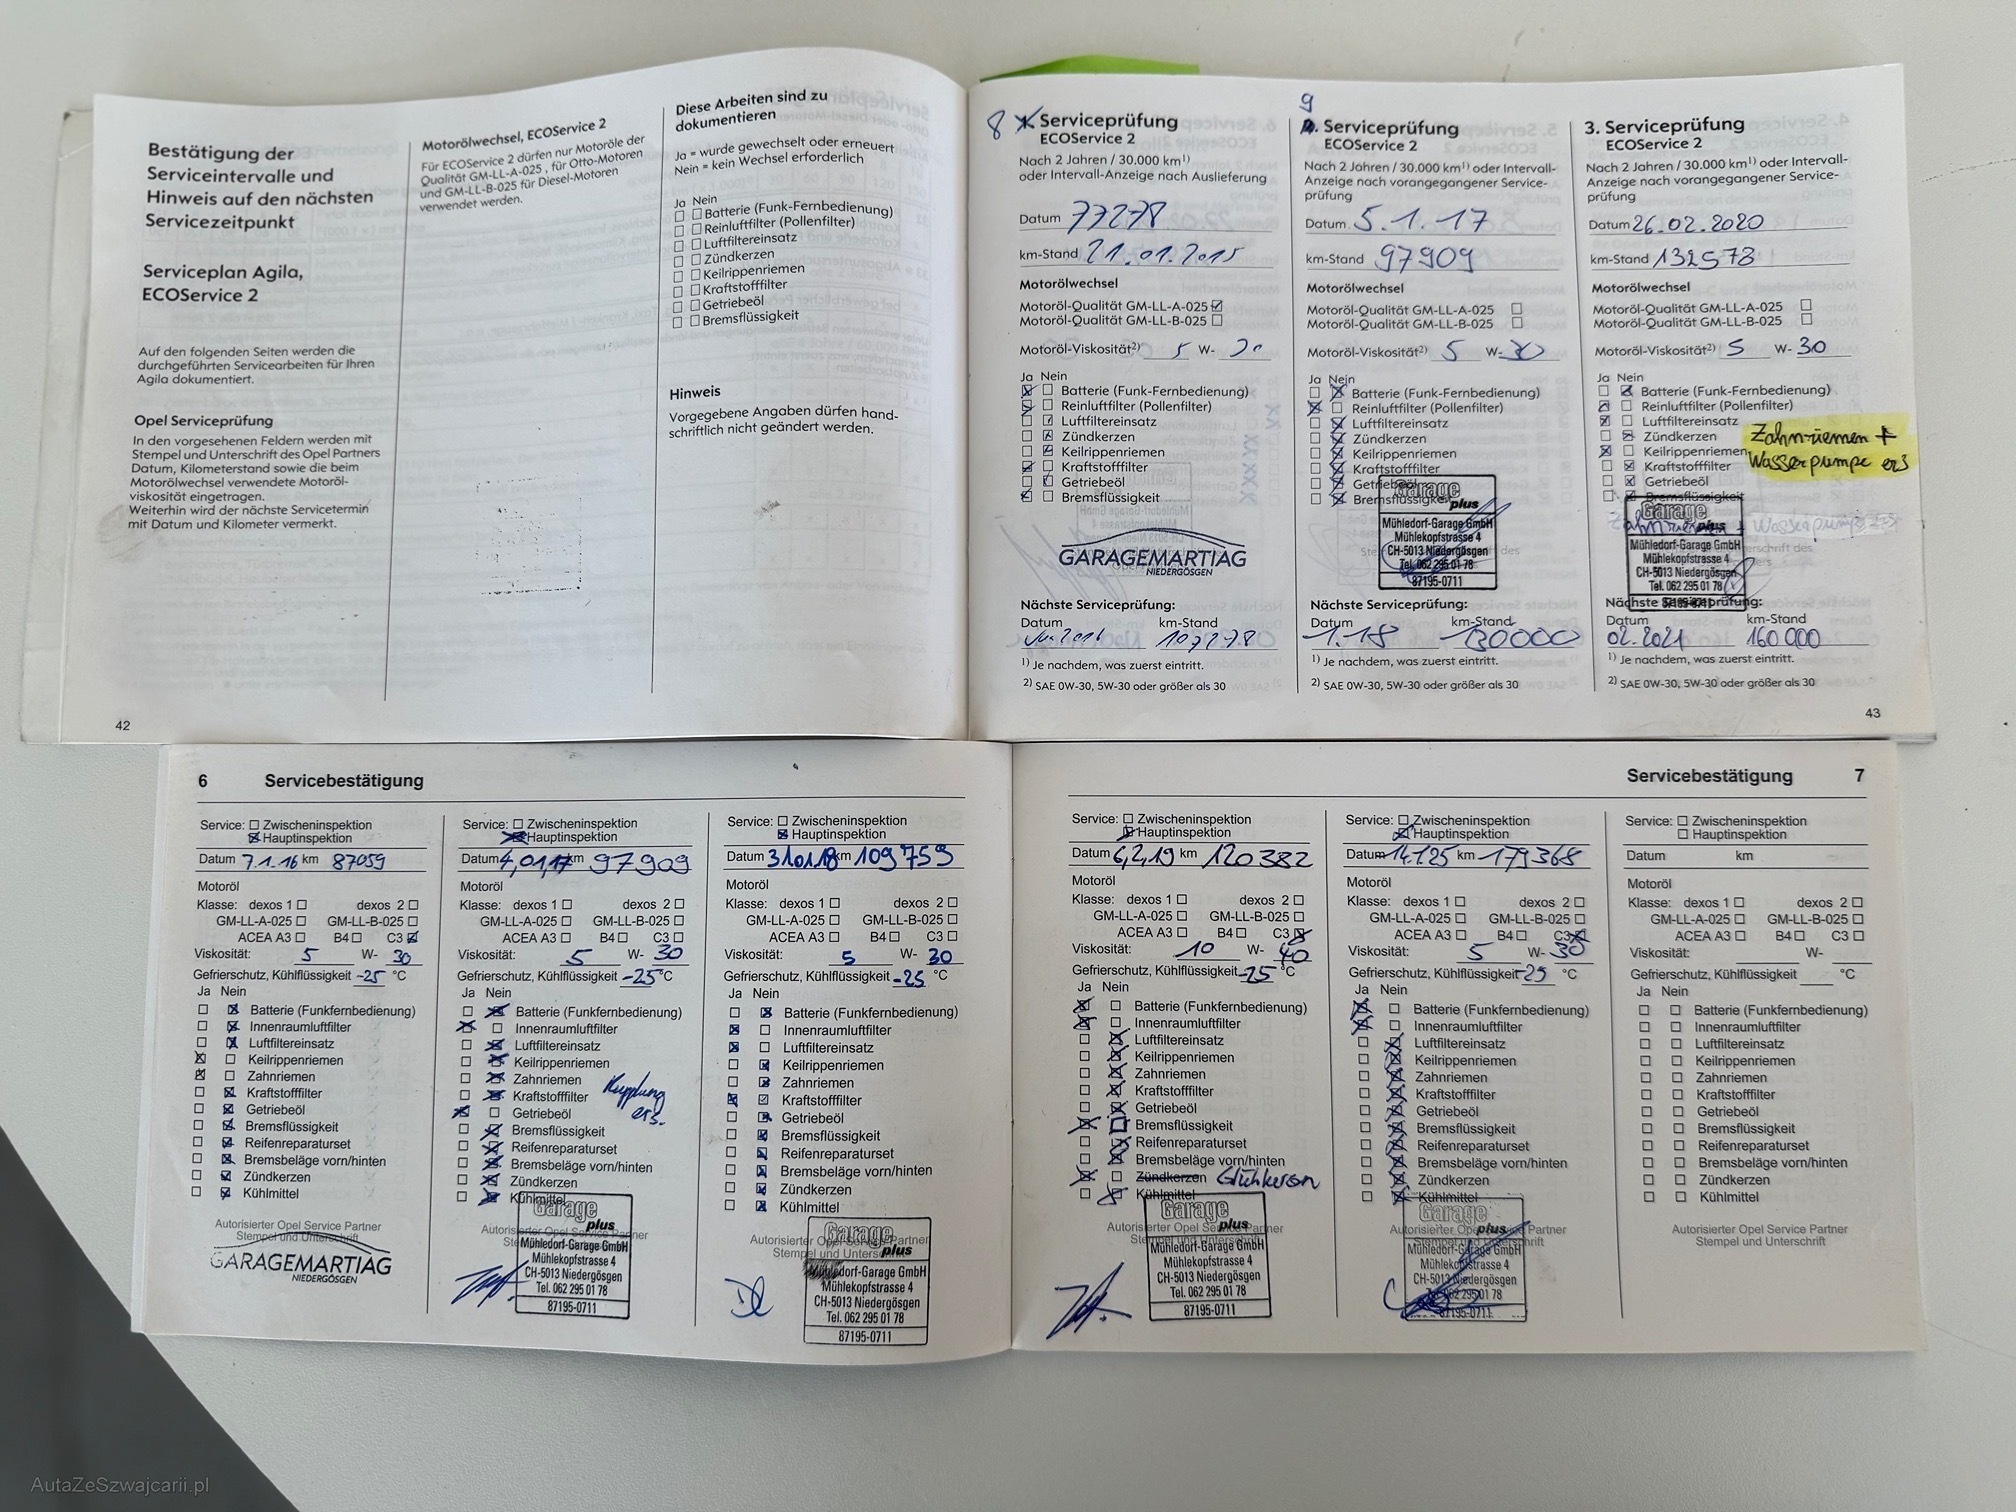 Bestätigung der
Serviceintervalle und
Hinweis auf den nächsten
Servicezeitpunkt
Serviceplan Agila,
ECOService 2
Auf den folgenden Seiten werden die
durchgeführten Servicearbeiten für Ihren
Agila dokumentiert.
Opel Serviceprüfung
In den vorgesehenen Feldern werden mit
Stempel und Unterschrift des Opel Partners
Datum, Kilometerstand sowie die beim
Motorölwechsel verwendete Motoröl-
viskosität eingetragen.
Weiterhin wird der nächste Servicetermin
mit Datum und Kilometer vermerkt.
42
Motorölwechsel, ECOService 2
Für ECOService 2 dürfen nur Motoröle der
Qualität GM-LL-A-025 , für Otto-Motoren
und GM-LL-B-025 für Diesel-Motoren
verwendet werden.
Diese Arbeiten sind zu
dokumentieren
Ja = wurde gewechselt oder erneuert
Nein = kein Wechsel erforderlich
Ja Nein
Batterie (Funk-Fernbedienung)
Reinluftfilter (Pollenfilter)
Luftfiltereinsatz
Zündkerzen
Keilrippenriemen
Kraftstofffilter
Getriebeöl
Bremsflüssigkeit
Hinweis
Vorgegebene Angaben dürfen hand-
schriftlich nicht geändert werden.
8 Serviceprüfung
ECOService 2
Nach 2 Jahren / 30.000 km¹⁾
oder Intervall-Anzeige nach Auslieferung
Datum 77278
km-Stand 21.01.2015
Motorölwechsel
Motoröl-Qualität GM-LL-A-025
Motoröl-Qualität GM-LL-B-025
Motoröl-Viskosität²⁾ 5 W- 30
Ja Nein
Batterie (Funk-Fernbedienung)
Reinluftfilter (Pollenfilter)
Luftfiltereinsatz
Zündkerzen
Keilrippenriemen
Kraftstofffilter
Getriebeöl
Bremsflüssigkeit
GARAGEMARTIAG
NIEDERGÖSGEN
Nächste Serviceprüfung:
Datum km-Stand
2016 107278
¹⁾ Je nachdem, was zuerst eintritt.
²⁾ SAE 0W-30, 5W-30 oder größer als 30
9
Serviceprüfung
ECOService 2
Nach 2 Jahren / 30.000 km¹⁾ oder Intervall-
Anzeige nach vorangegangener Service-
prüfung
Datum 5.1.17
km-Stand 97909
Motorölwechsel
Motoröl-Qualität GM-LL-A-025
Motoröl-Qualität GM-LL-B-025
Motoröl-Viskosität²⁾ 5 W- 30
Ja Nein
Batterie (Funk-Fernbedienung)
Reinluftfilter (Pollenfilter)
Luftfiltereinsatz
Zündkerzen
Keilrippenriemen
Kraftstofffilter
Getriebeöl
Bremsflüssigkeit
Garage
plus
Mühledorf-Garage GmbH
Mühlekopfstrasse 4
CH-5013 Niedergösgen
Tel. 062 295 01 78
87195-0711
Nächste Serviceprüfung:
Datum km-Stand
1.18 130000
¹⁾ Je nachdem, was zuerst eintritt.
²⁾ SAE 0W-30, 5W-30 oder größer als 30
3. Serviceprüfung
ECOService 2
Nach 2 Jahren / 30.000 km¹⁾ oder Intervall-
Anzeige nach vorangegangener Service-
prüfung
Datum 26.02.2020
km-Stand 132578
Motorölwechsel
Motoröl-Qualität GM-LL-A-025
Motoröl-Qualität GM-LL-B-025
Motoröl-Viskosität²⁾ 5 W- 30
Ja Nein
Batterie (Funk-Fernbedienung)
Reinluftfilter (Pollenfilter)
Luftfiltereinsatz
Zündkerzen
Keilrippenriemen
Kraftstofffilter
Getriebeöl
Bremsflüssigkeit
Zahnriemen +
Wasserpumpe ers
Garage
plus
Mühledorf-Garage GmbH
Mühlekopfstrasse 4
CH-5013 Niedergösgen
Tel. 062 295 01 78
87195-0711
Nächste Serviceprüfung:
Datum km-Stand
02.2021 160.000
¹⁾ Je nachdem, was zuerst eintritt.
²⁾ SAE 0W-30, 5W-30 oder größer als 30
43
6 Servicebestätigung
Service: Zwischeninspektion
Hauptinspektion
Datum 7.1.16 km 87059
Motoröl
Klasse: dexos 1 dexos 2
GM-LL-A-025 GM-LL-B-025
ACEA A3 B4 C3
Viskosität: 5 W- 30
Gefrierschutz, Kühlflüssigkeit -25 °C
Ja Nein
Batterie (Funkfernbedienung)
Innenraumluftfilter
Luftfiltereinsatz
Keilrippenriemen
Zahnriemen
Kraftstofffilter
Getriebeöl
Bremsflüssigkeit
Reifenreparaturset
Bremsbeläge vorn/hinten
Zündkerzen
Kühlmittel
Autorisierter Opel Service Partner
Stempel und Unterschrift
GARAGEMARTIAG
NIEDERGÖSGEN
Service: Zwischeninspektion
Hauptinspektion
Datum 4,01,17 km 97909
Motoröl
Klasse: dexos 1 dexos 2
GM-LL-A-025 GM-LL-B-025
ACEA A3 B4 C3
Viskosität: 5 W- 30
Gefrierschutz, Kühlflüssigkeit -25 °C
Ja Nein
Batterie (Funkfernbedienung)
Innenraumluftfilter
Luftfiltereinsatz
Keilrippenriemen
Zahnriemen
Kraftstofffilter
Getriebeöl
Bremsflüssigkeit
Reifenreparaturset
Bremsbeläge vorn/hinten
Zündkerzen
Kühlmittel
Kupplung
ers.
Garage
plus
Mühledorf-Garage GmbH
Mühlekopfstrasse 4
CH-5013 Niedergösgen
Tel. 062 295 01 78
87195-0711
Service: Zwischeninspektion
Hauptinspektion
Datum 31.01.18 km 109759
Motoröl
Klasse: dexos 1 dexos 2
GM-LL-A-025 GM-LL-B-025
ACEA A3 B4 C3
Viskosität: 5 W- 30
Gefrierschutz, Kühlflüssigkeit -25 °C
Ja Nein
Batterie (Funkfernbedienung)
Innenraumluftfilter
Luftfiltereinsatz
Keilrippenriemen
Zahnriemen
Kraftstofffilter
Getriebeöl
Bremsflüssigkeit
Reifenreparaturset
Bremsbeläge vorn/hinten
Zündkerzen
Kühlmittel
Autorisierter Opel Service Partner
Stempel und Unterschrift
Garage
plus
Mühledorf-Garage GmbH
Mühlekopfstrasse 4
CH-5013 Niedergösgen
Tel. 062 295 01 78
87195-0711
Servicebestätigung 7
Service: Zwischeninspektion
Hauptinspektion
Datum 6,2,19 km 120382
Motoröl
Klasse: dexos 1 dexos 2
GM-LL-A-025 GM-LL-B-025
ACEA A3 B4 C3
Viskosität: 10 W- 40
Gefrierschutz, Kühlflüssigkeit -25 °C
Ja Nein
Batterie (Funkfernbedienung)
Innenraumluftfilter
Luftfiltereinsatz
Keilrippenriemen
Zahnriemen
Kraftstofffilter
Getriebeöl
Bremsflüssigkeit
Reifenreparaturset
Bremsbeläge vorn/hinten
Zündkerzen Glühkerzen
Kühlmittel
Autorisierter Opel Service Partner
Garage
plus
Mühledorf-Garage GmbH
Mühlekopfstrasse 4
CH-5013 Niedergösgen
Tel. 062 295 01 78
87195-0711
Service: Zwischeninspektion
Hauptinspektion
Datum 14.1.25 km 179368
Motoröl
Klasse: dexos 1 dexos 2
GM-LL-A-025 GM-LL-B-025
ACEA A3 B4 C3
Viskosität: 5 W- 30
Gefrierschutz, Kühlflüssigkeit -25 °C
Ja Nein
Batterie (Funkfernbedienung)
Innenraumluftfilter
Luftfiltereinsatz
Keilrippenriemen
Zahnriemen
Kraftstofffilter
Getriebeöl
Bremsflüssigkeit
Reifenreparaturset
Bremsbeläge vorn/hinten
Zündkerzen
Kühlmittel
Autorisierter Opel Service Partner
Stempel und Unterschrift
Garage
plus
Mühledorf-Garage GmbH
Mühlekopfstrasse 4
CH-5013 Niedergösgen
Tel. 062 295 01 78
87195-0711
Service: Zwischeninspektion
Hauptinspektion
Datum km
Motoröl
Klasse: dexos 1 dexos 2
GM-LL-A-025 GM-LL-B-025
ACEA A3 B4 C3
Viskosität: W-
Gefrierschutz, Kühlflüssigkeit °C
Ja Nein
Batterie (Funkfernbedienung)
Innenraumluftfilter
Luftfiltereinsatz
Keilrippenriemen
Zahnriemen
Kraftstofffilter
Getriebeöl
Bremsflüssigkeit
Reifenreparaturset
Bremsbeläge vorn/hinten
Zündkerzen
Kühlmittel
Autorisierter Opel Service Partner
Stempel und Unterschrift
AutaZeSzwajcarii.pl